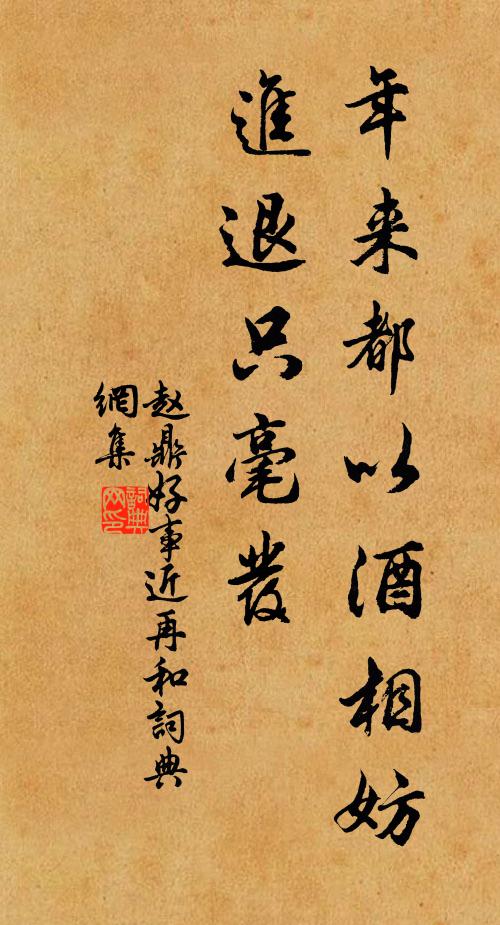 年来都以酒相妨
進退只毫發
赵鼎好事近再和詞典
網集
詞典
网印